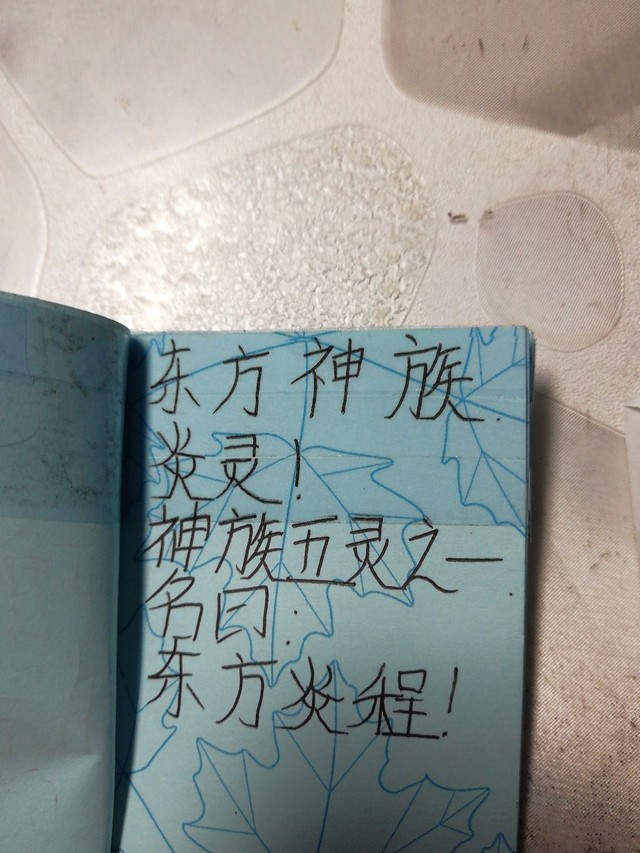 东方神族.
炎灵!
神族五灵之一.
名曰:
东方炎程!